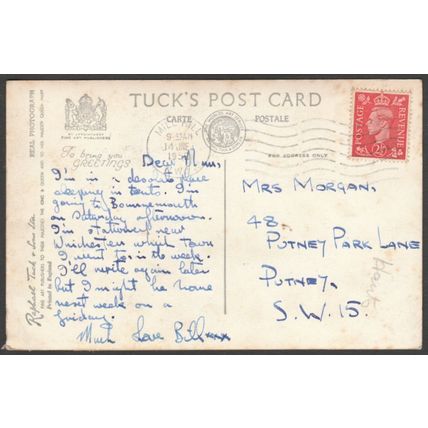 TUCK'S POST CARD
CARTE POSTALE
BY APPOINTMENT
FINE ART PUBLISHERS
FOR ADDRESS ONLY
To bring you
GREETINGS
REAL PHOTOGRAPH
Raphael Tuck & Sons Ltd.
FINE ART PUBLISHERS TO THEIR MAJESTIES THE KING & QUEEN AND TO HER MAJESTY QUEEN MARY
Printed in England
MILL HILL
14 JNE
POSTAGE
REVENUE
2½D
Dear Mum,
I'm in a desolate place
sleeping in tents. I'm
going to Bournemouth
on Saturday afternoon.
I'm stationed near
Winchester which town
I went to in the week.
I'll write again later
but I might be home
next week on a
Friday.
Much Love Bill xxx
MRS MORGAN,
48
PUTNEY PARK LANE
PUTNEY,
S.W. 15.
Hants